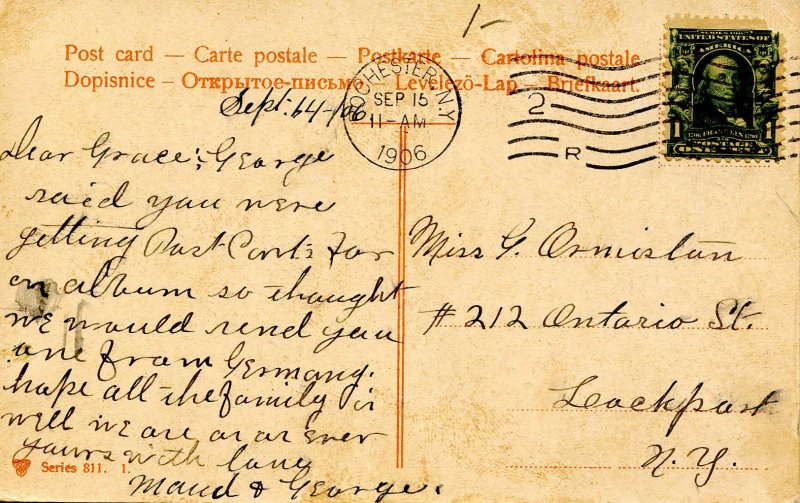 Post card — Carte postale — Postkarte — Cartolina postale
Dopisnice — Открытое-письмо — Levelező-Lap — Briefkaart.
ROCHESTER, N.Y.
SEP 15
11-AM
1906
2
R
SERIES 1902
UNITED STATES OF
AMERICA
1 FRANKLIN 1
POSTAGE
ONE CENT
Sept. 14-/06
Dear Grace; George
said you were
getting Post Cards for
an album so thought
we would send you
one from Germany.
hope all the family is
well we are as ever
yours with love
Maud & George.
Miss G. Ormistan
#212 Ontario St.
Lockport
N.Y.
Series 811. 1.